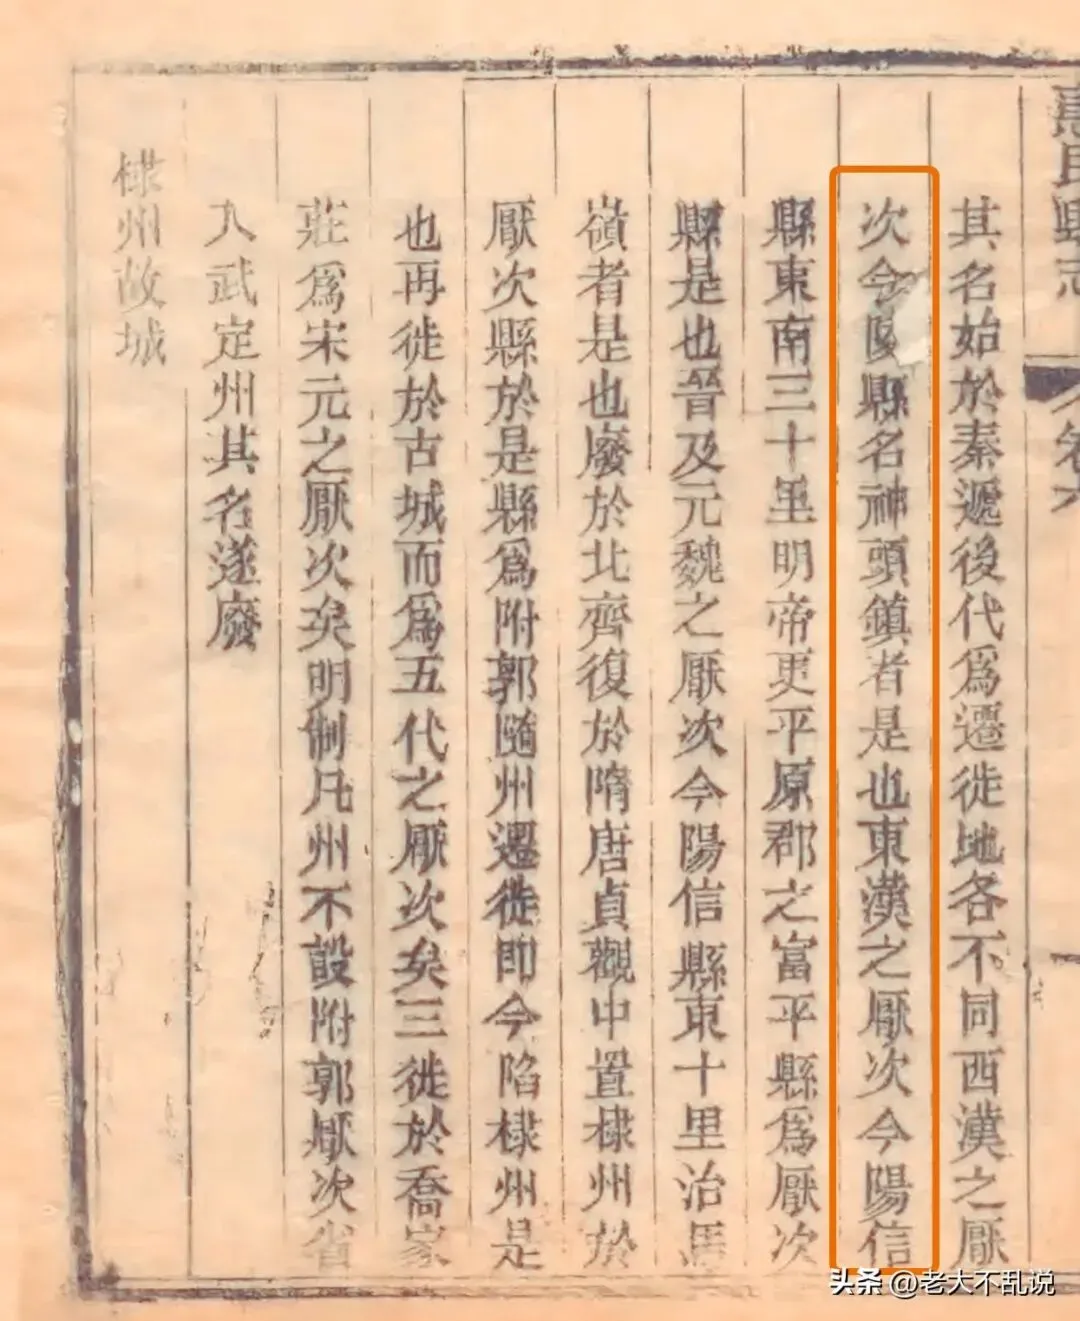 惠民縣志
卷六
其名始於秦遞後代爲遷徙地各不同西漢之厭
次今陵縣名神頭鎮者是也東漢之厭次今陽信
縣東南三十里明帝更平原郡之富平縣爲厭次
縣是也晉及元魏之厭次今陽信縣東十里治馬
嶺者是也廢於北齊復於隋唐貞觀中置棣州於
厭次縣於是縣爲附郭隨州遷徙即今陷棣州是
也再徙於古城而爲五代之厭次矣三徙於喬家
莊爲宋元之厭次矣明制凡州不設附郭厭次省
入武定州其名遂廢
棣州故城
头条 @老大不乱说